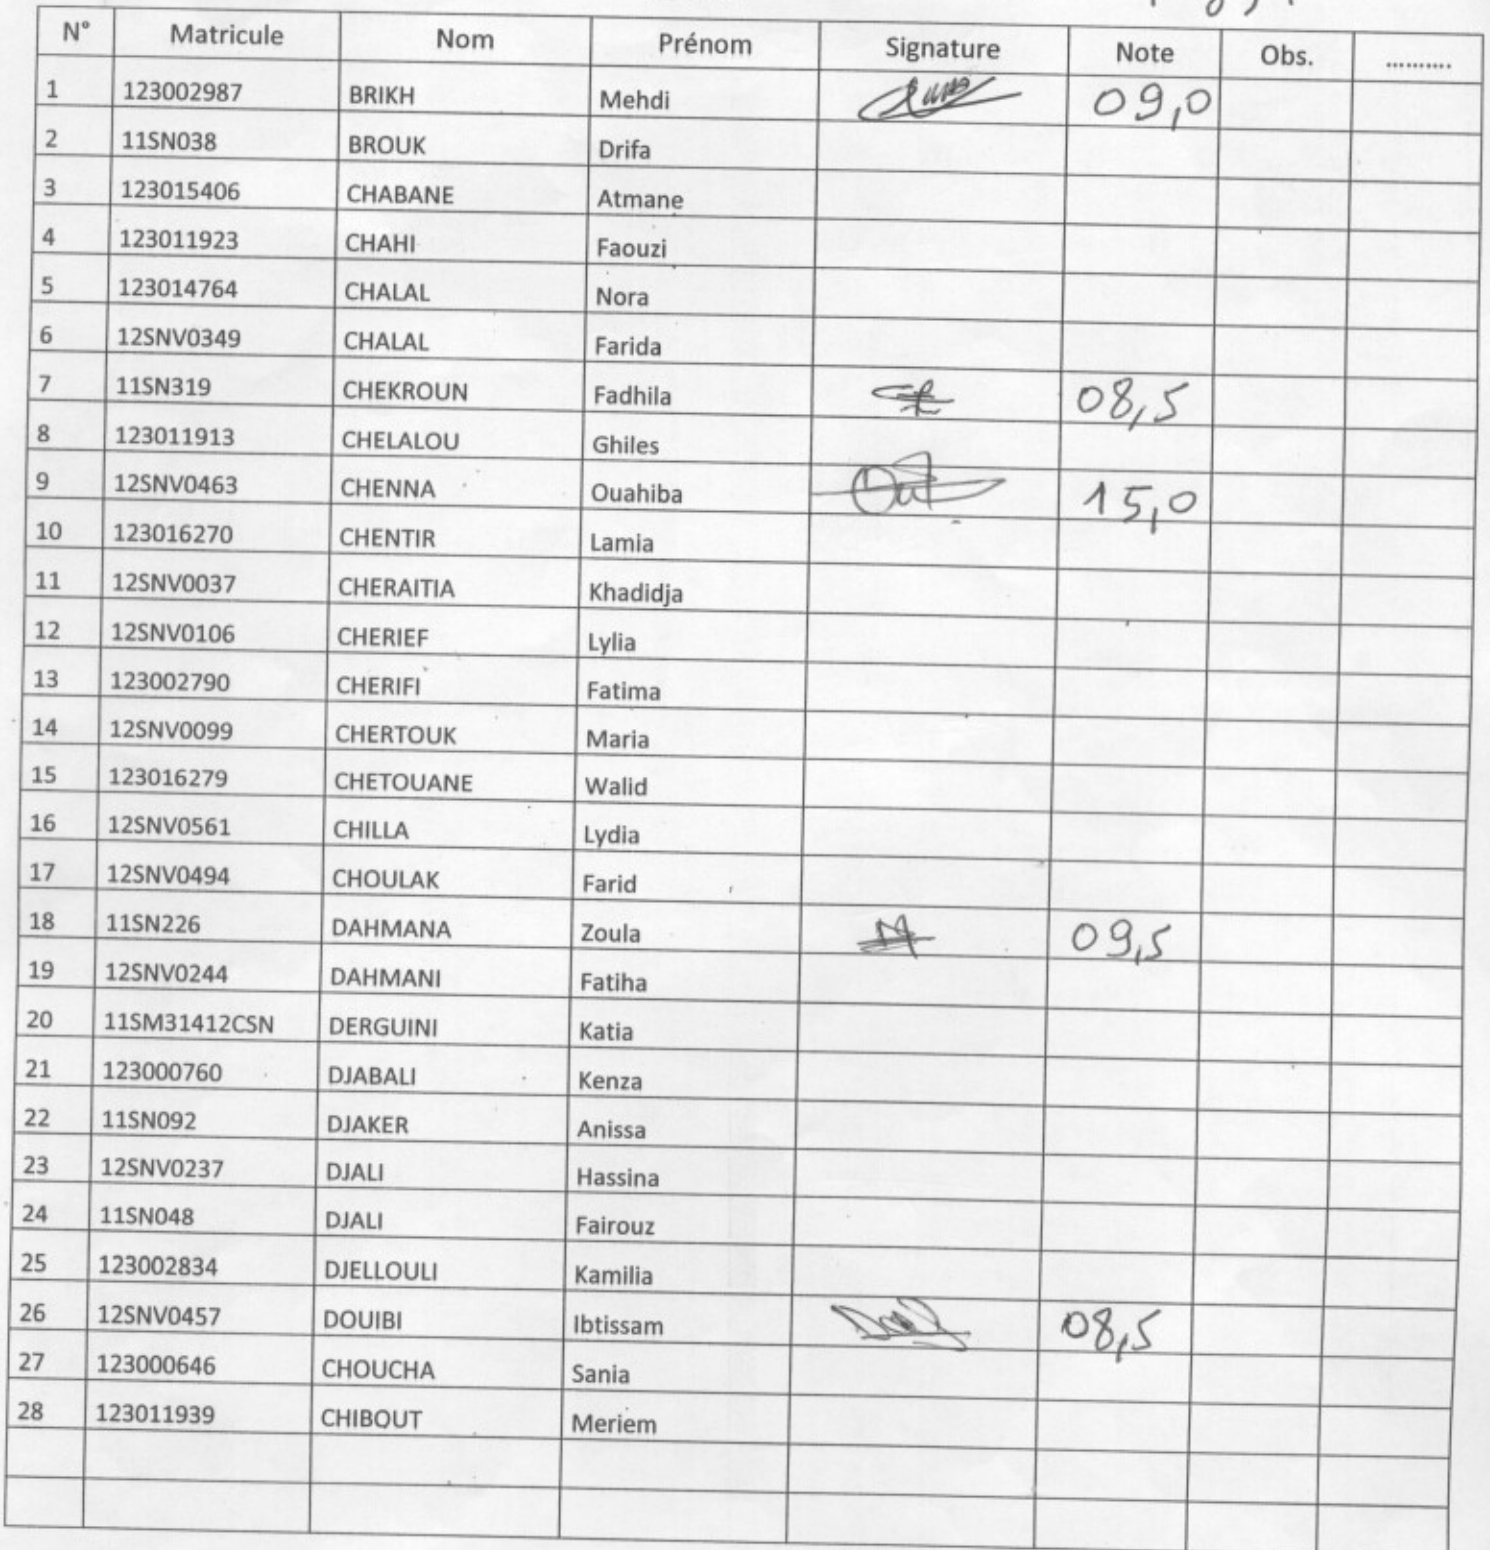 N° Matricule Nom Prénom Signature Note Obs. ..........
1 123002987 BRIKH Mehdi 09,0
2 11SN038 BROUK Drifa
3 123015406 CHABANE Atmane
4 123011923 CHAHI Faouzi
5 123014764 CHALAL Nora
6 12SNV0349 CHALAL Farida
7 11SN319 CHEKROUN Fadhila 08,5
8 123011913 CHELALOU Ghiles
9 12SNV0463 CHENNA Ouahiba 15,0
10 123016270 CHENTIR Lamia
11 12SNV0037 CHERAITIA Khadidja
12 12SNV0106 CHERIEF Lylia
13 123002790 CHERIFI Fatima
14 12SNV0099 CHERTOUK Maria
15 123016279 CHETOUANE Walid
16 12SNV0561 CHILLA Lydia
17 12SNV0494 CHOULAK Farid
18 11SN226 DAHMANA Zoula 09,5
19 12SNV0244 DAHMANI Fatiha
20 11SM31412CSN DERGUINI Katia
21 123000760 DJABALI Kenza
22 11SN092 DJAKER Anissa
23 12SNV0237 DJALI Hassina
24 11SN048 DJALI Fairouz
25 123002834 DJELLOULI Kamilia
26 12SNV0457 DOUIBI Ibtissam 08,5
27 123000646 CHOUCHA Sania
28 123011939 CHIBOUT Meriem